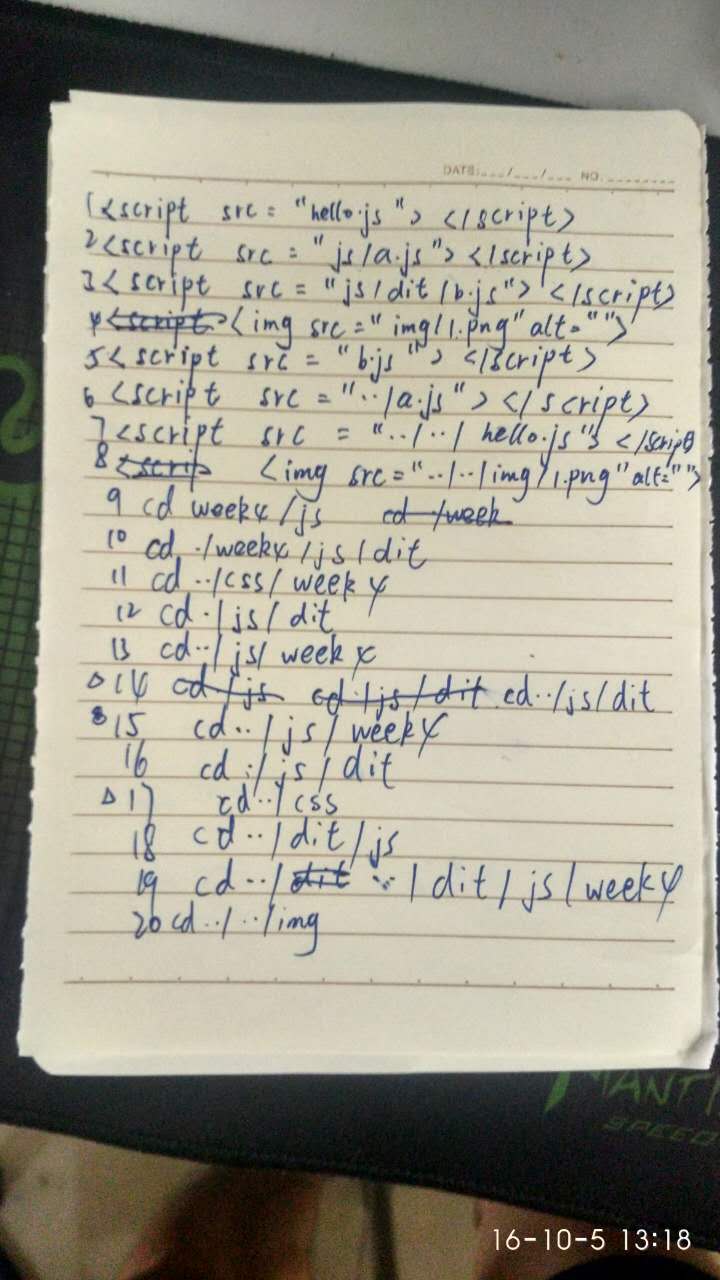 DATE:___/___/___ NO.________
1<script src = "hello.js"> </script>
2<script src = "js/a.js"> </script>
3<script src = "js/dit/b.js"> </script>
4<script> <img src="img/1.png" alt="">
5<script src = "b.js"> </script>
6<script src = "../a.js"> </script>
7<script src = "../../hello.js"> </script>
8<scrip <img src="../../img/1.png" alt="">
9 cd week4/js cd /week
10 cd ./week4/js/dit
11 cd ../css/week4
12 cd ./js/dit
13 cd ../js/week4
△14 cd /js cd ./js/dit cd ../js/dit
15 cd ../js/week4
16 cd ./js/dit
△17 cd ../css
18 cd ../dit/js
19 cd ../dit ../dit/js/week4
20 cd ../../img
MANTI
SPEED
16-10-5 13:18